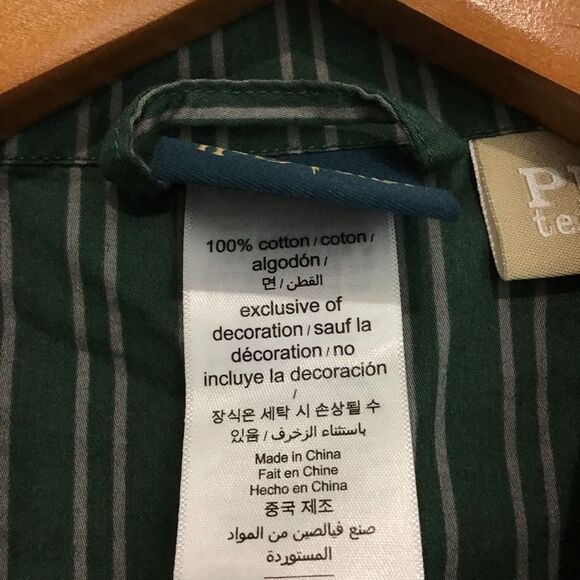 100% cotton / coton /
algodón /
면 / القطن /
exclusive of
decoration / sauf la
décoration / no
incluye la decoración
/
장식은 세탁 시 손상될 수
있음 / باستثناء الزخرف /
Made in China
Fait en Chine
Hecho en China
중국 제조
صنع فيالصين من المواد
المستوردة